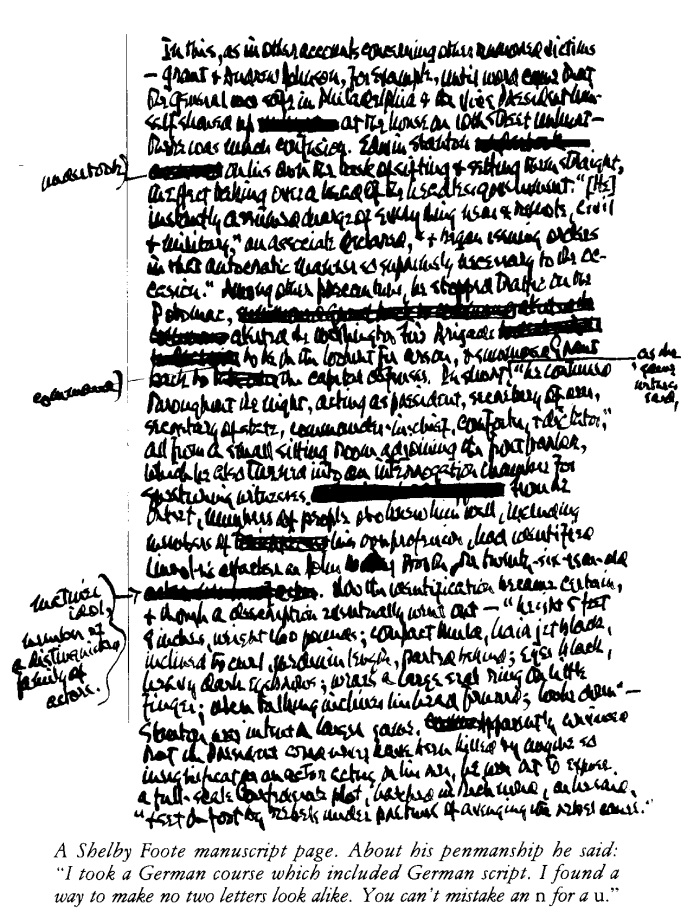 In this, as in other accounts concerning other rumored victims
— Grant & Andrew Johnson, for example, until word came that
the general was safe in Philadelphia & the Vice President him-
self showed up at the house on 10th Street unhurt —
there was much confusion. Edwin Stanton
undertook
on his own the task of sifting & setting them straight,
in effect taking over as head of the headless government. "[He]
instantly assumed charge of everything near & remote, civil
& military," an associate declared, "& began issuing orders
in that autocratic manner so supremely necessary to the oc-
casion." Among other precautions, he stopped traffic on the
Potomac,
alerted the Washington Fire Brigade
to be on the lookout for arson, & summoned Grant
as the
same
witness
said,
back to the capital defenses. In short, "he continued
command
throughout the night, acting as president, secretary of war,
secretary of state, commander-in-chief, comforter, & dictator,"
all from a small sitting room adjoining the front parlor,
which he also turned into an interrogation chamber for
questioning witnesses. From the
outset, numbers of people who knew him well, including
members of his own profession, had identified
Lincoln's attacker as John Booth, the twenty-six-year-old
matinee
idol,
member of
a distinguished
family of
actors.
Now the identification became certain,
& though a description eventually went out — "height 5 feet
8 inches, weight 160 pounds; compact build; hair jet black,
inclined to curl, medium length, parted behind; eyes black,
heavy dark eyebrows; wears a large seal ring on little
finger; when talking inclines his head forward; looks down" —
Stanton was intent on larger game. Apparently convinced
that the President could never have been killed by anyone so
insignificant as an actor acting on his own, he was out to expose
a full-scale Confederate plot, hatched in Richmond, as he said,
"& set on foot by rebels under pretense of avenging the rebel cause."
A Shelby Foote manuscript page. About his penmanship he said:
"I took a German course which included German script. I found a
way to make no two letters look alike. You can't mistake an n for a u."